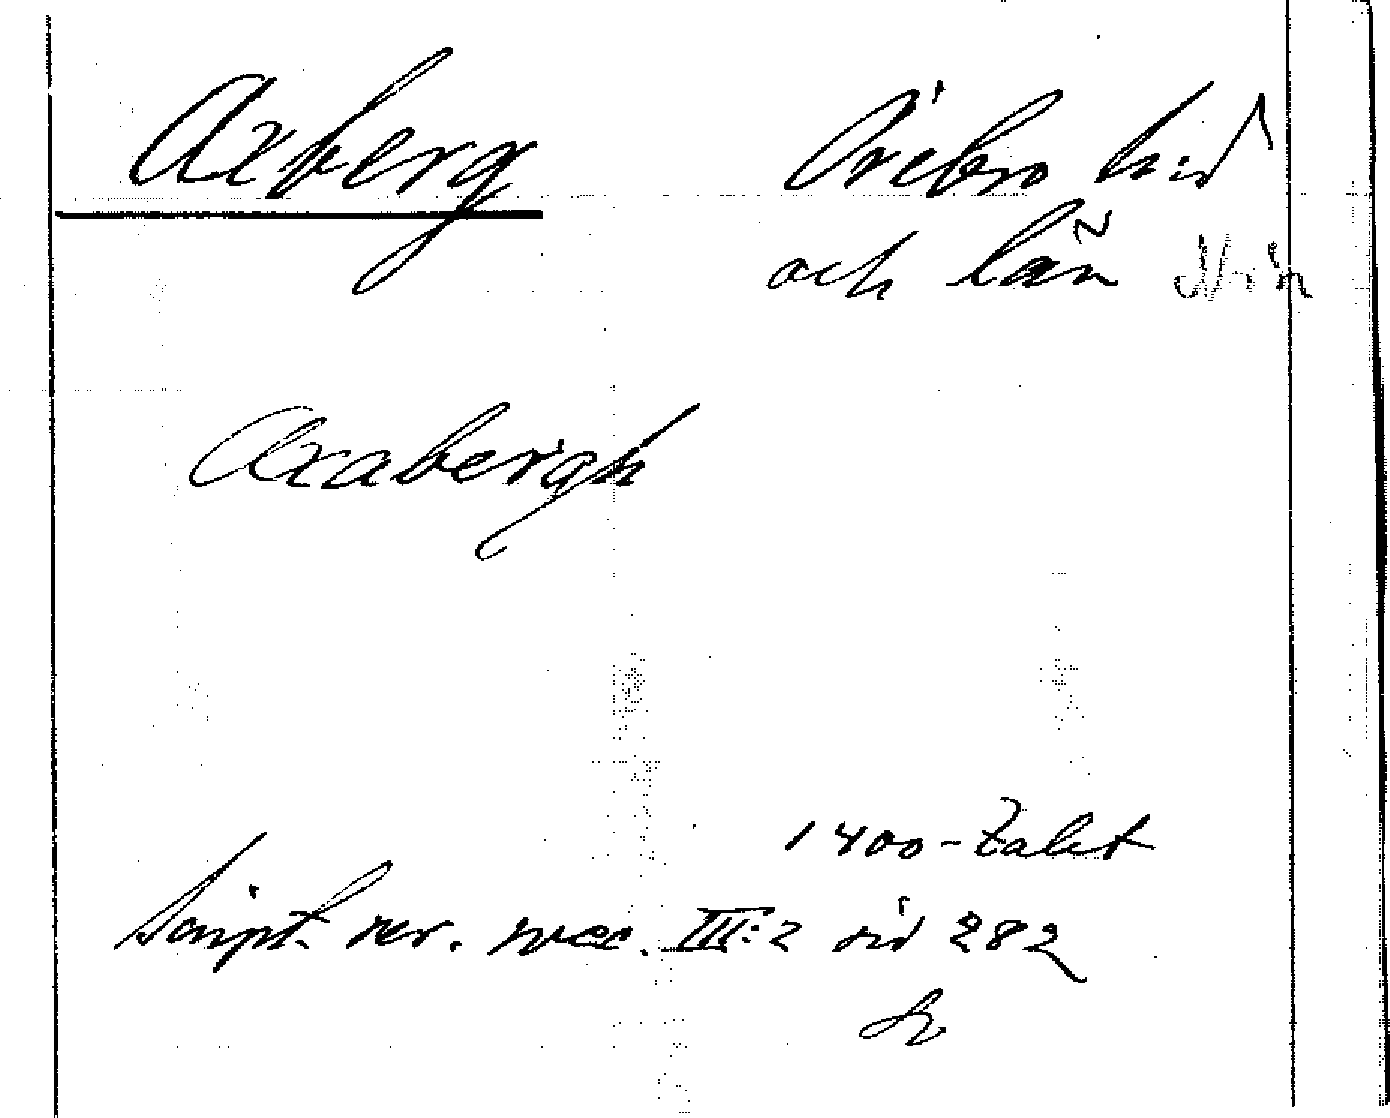 Axberg Örebro hd
och län Nrk
Axabergh
1400-talet
Script. rer. svec. III:2 sid 282